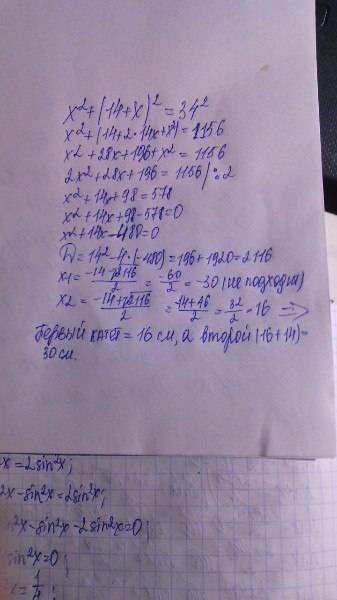 x² + (14+x)² = 34²
x² + (14+2·14x+x²) = 1156
x² + 28x + 196 + x² = 1156
2x² + 28x + 196 = 1156 | : 2
x² + 14x + 98 = 578
x² + 14x + 98 - 578 = 0
x² + 14x - 480 = 0
D = 14² - 4·(-480) = 196 + 1920 = 2116
x1 = (-14 - √2116)/2 = -60/2 = -30 (не подходит)
x2 = (-14 + √2116)/2 = (-14 + 46)/2 = 32/2 = 16 ⇒
Первый катет = 16 см, а второй (16+14) =
30 см.
x = 2sin²x;
2x - sin²x = 2sin²x;
²x - sin²x - 2sin²x = 0;
sin²x = 0;
x = 1/4;